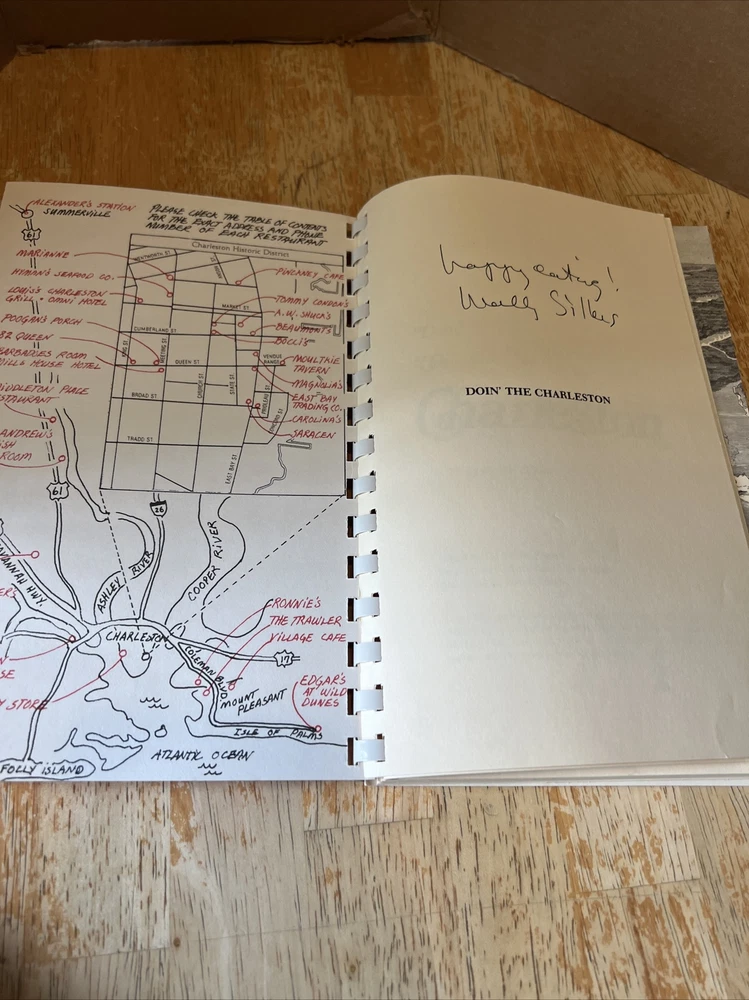 ALEXANDER'S STATION
SUMMERVILLE
PLEASE CHECK THE TABLE OF CONTENTS
FOR THE EXACT ADDRESS AND PHONE
NUMBER OF EACH RESTAURANT
61
Charleston Historic District
WENTWORTH ST.
MARIANNE
HYMAN'S SEAFOOD CO.
LOUIS'S CHARLESTON
GRILL • OMNI HOTEL
POOGAN'S PORCH
82 QUEEN
BARBADOES ROOM
MILLS HOUSE HOTEL
MIDDLETON PLACE
RESTAURANT
ANDREW'S
ROOM
PINCKNEY CAFE
TOMMY CONDON'S
A.W. SHUCK'S
BEAUMONT'S
BOCCI'S
MOULTRIE
TAVERN
MAGNOLIA'S
EAST BAY
TRADING CO.
CAROLINA'S
SARACEN
MARKET ST.
CUMBERLAND ST.
KING ST.
MEETING ST.
QUEEN ST.
VENDUE
RANGE
CHURCH ST.
STATE ST.
BROAD ST.
TRADD ST.
EAST BAY ST.
61
26
SAVANNAH HWY.
ASHLEY RIVER
COOPER RIVER
CHARLESTON
RONNIE'S
THE TRAWLER
VILLAGE CAFE
17
COLEMAN BLVD
MOUNT
PLEASANT
EDGAR'S
AT WILD
DUNES
ISLE OF PALMS
ATLANTIC OCEAN
FOLLY ISLAND
happy eating!
DOIN' THE CHARLESTON